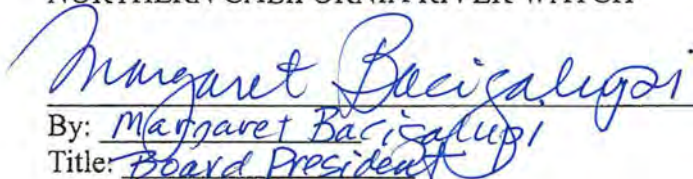 NORTHERN CALIFORNIA RIVER WATCH
Margaret Bacigalupi
By: Margaret Bacigalupi
Title: Board President